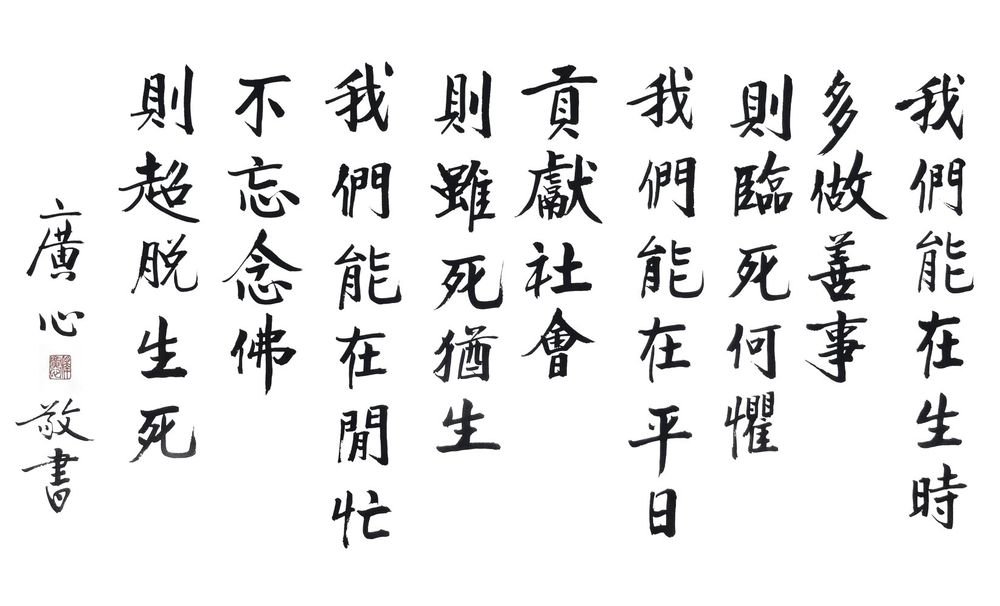 我們能在生時
多做善事
則臨死何懼
我們能在平日
貢獻社會
則雖死猶生
我們能在閒忙
不忘念佛
則超脫生死
廣心
敬書